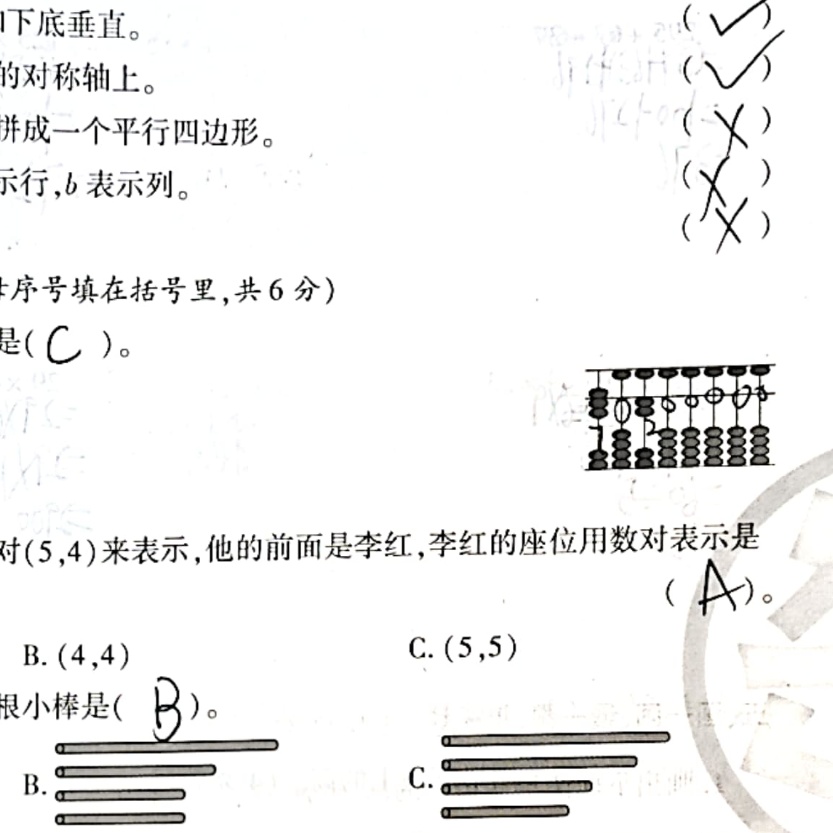 下底垂直。 (✓)
的对称轴上。 (✓)
拼成一个平行四边形。 (X)
示行,b 表示列。 (X)
(X)
序号填在括号里,共6分)
是( C )。
7 0 2 0 0 0 0 0
对(5,4)来表示,他的前面是李红,李红的座位用数对表示是
( A )。
B. (4,4) C. (5,5)
根小棒是( B )。
B. C.